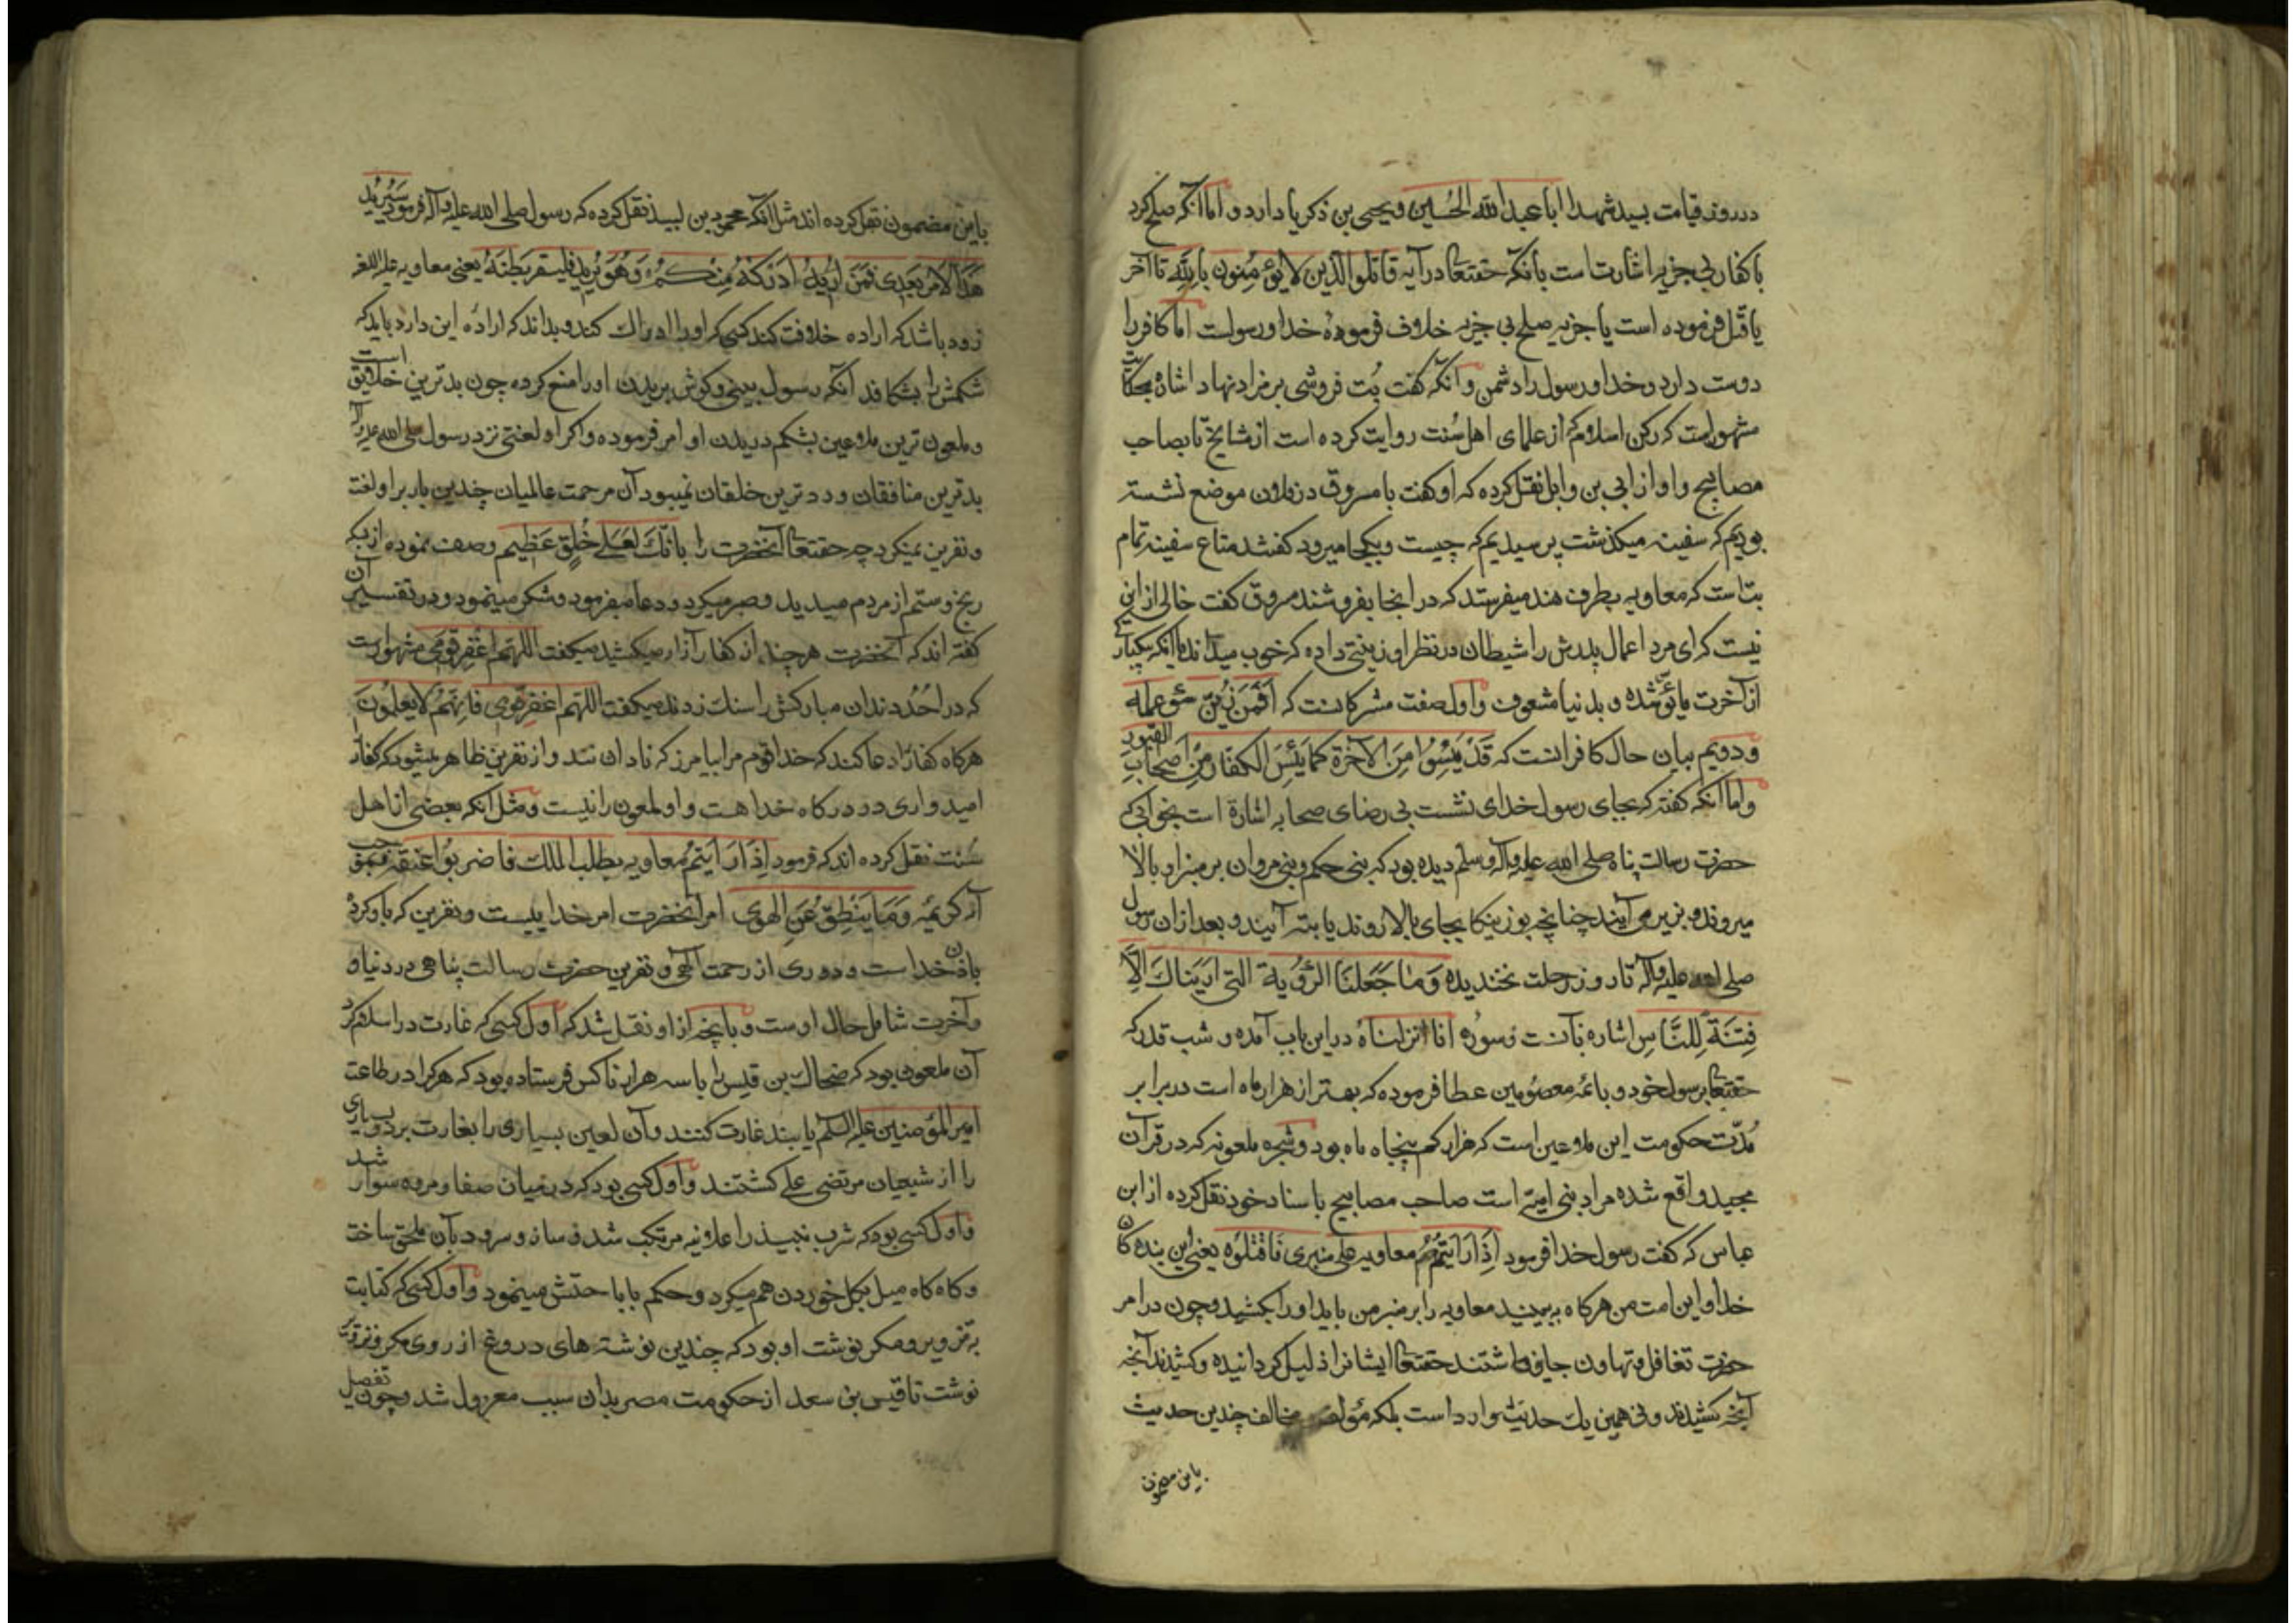 در روز قیامت بسید شهدا ابا عبد الله الحُسین و یحیی بن ذکریا دارد و اما انکه صلح کرد
با کفار بی جزیه اشارتست بآنکه حقتعا در آیه قاتلوا الذین لا یؤمنون بالله تا آخر
یا قتل فرموده است یا جزیه صلح بی جزیه خلاف فرمودهٔ خدا و رسولست اما کافر را
دوست دارد و خدا و رسول را دشمن و آنکه گفت بُت فروشی بر مزاد نهاد اشاره بحکایت
مشهورست که رکن اسلام که از علمای اهل سُنت روایت کرده است از مشایخ تا بصاحب
مصابیح و او از ابی بن وابل نقل کرده که او گفت با مسروق در فلان موضع نشسته
بودیم که سفینه میکذشت پرسیدیم که چیست و بکجا میرود کفتند متاع سفینه تمام
بتست که معاویه بطرف هند میفرستد که در انجا بفروشند مسروق گفت خالی از این
نیست که ای مرد اعمال بدش را شیطان در نظر او زینتی داده که خوب میداند یا انکه بیکبارکی
از آخرت مایوس شده و بدنیا مشعوف و اول صفت مشرکانست که اَفَمَن زُیّنَ سوء عمله
و دویم بیان حال کافرانست که قَدْ یَئِسُوا مِنَ الآخرة کما یَئِسَ الکفار مِن اَصحاب القبور
و اما انکه کفته که بجای رسول خدای نشست بی رضای صحابه اشارة است بخوابی که
حضرت رسالت پناه صلی الله علیه و آله و سلم دیده بود که بنی حکم و بنی مروان بر منبر او بالا
میروند و بزیر می آیند چنانچه بوزینکان بجای بالا روند یا بته آیند و بعد از ان رسول
صلی الله علیه و آله تا روز رحلت نخندیده وَ ما جَعَلنَا الرُّؤیة التی اریناک اِلّا
فِتنَةً لِلنّاسِ اشاره بآنست و سورۀ انا انزلناهُ در این باب آمده و شب قدر که
حقتعا برسول خود و بائمه معصُومین عطا فرموده که بهتر از هزار ماه است در برابر
مُدّت حکومت این ملاعین است که هزار کم پنجاه ماه بود و شجره ملعونه که در قرآن
مجید واقع شده مراد بنی امیّه است صاحب مصابیح باسناد خود نقل کرده از ابن
عباس که گفت رسول خدا فرمود اِذَا رَایتُم معاویه علی منبری فَاقتُلُوه یعنی این بنده کان
خدا و این امت من هرکاه به بینید معاویه را بر منبر من باید او را بکشید و چون در امر
حضرت تغافل و تهاون جایز داشتند حقتعا ایشانرا ذلیل کردانیده و کشیدند آنچه
آنچه کشیدند و نه همین یک حدیث وارد است بلکه مؤلف مخالف چندین حدیث
باین مضمون
باین مضمون نقل کرده اند مثل انکه محمود بن لبید نقل کرده که رسول صلی الله علیه و آله فرمود سَیُرِیدُ
هَذَا الاَمرَ بَعدِی فَمَن اَدرَکَهُ مِنکُم وَ هُوَ یُریدُ فلیبقر بَطنَهُ یعنی معاویه علیه اللعنه
زود باشد که اراده خلافت کند کسی که او را ادراک کند و بداند که ارادۀ این دارد باید که
شکمش را بشکافد آنکه رسول بینی و کوش بریدن او را منع کرده چون بدترین خلایق است
و ملعون ترین ملاعین بشکم دریدن او امر فرموده و اگر او لعنتی نزد رسول صلی الله علیه و آله
بدترین منافقان و بدترین خلقان نمیبود آن مرحمت عالمیان چندین بار بر او لعنت
و نفرین نمیکرد چه حقتعا آنحضرت را بانّکَ لَعَلی خُلقٍ عَظیم وصف نموده از بسکه
رنج و ستم از مردم میدید و صبر میکرد و دعا میفرمود و شکر مینمود و در تفسیر آن
کفته اند که آنحضرت هر چند از کفار آزار میکشید میکفت اللهُمّ اغفِر قَومِی مشهورست
که در اُحُد دندان مبارکش را سنک زدند میکفت اللهُمّ اغفِر قَومِی فَاِنّهُم لا یَعلَمُونَ
هرکاه کفار را دعا کند که خدا قوم مرا بیامرز که نادان نند و از نفرین ظاهر میشود که کفار را
امیدواری در درکاه خدا هست و او ملعون را نیست و مثل انکه بعضی از اهل
سُنت نقل کرده اند که فرمود اِذَا رَاَیتُم معاویه یطلب الملک فاضربُوا عُنقه بموجب
آیه کریمه وَ مَا یَنطِقُ عَنِ الهوی امر آنحضرت امر خداییست و نفرین که باو کرده
باذن خداست و دوری از رحمت الهی و نفرین حضرت رسالت پناهی در دنیا و
آخرت شامل حال اوست و بآنچه از او نقل شد که اول کسی که غارت در اسلام کرد
آن ملعون بود که ضحاک بن قیس را با سه هزار ناکس فرستاده بود که هرکرا در طاعت
امیر المؤمنین علیه السلام یابند غارت کنند و آن لعین بسیاری را بغارت برد و بسیاری
را از شیعیان مرتضی علی کشتند و اول کسی بود که در میان صفا و مروه سوار شد
و اول کسی بود که شرب نبیذ را علانیه مرتکب شد و ساز و سرود بآن ملحق ساخت
و کاه کاه میل بکل خوردن هم میکرد و حکم باباحتش مینمود و اول کسی که کتابت
به تزویر و مکر نوشت او بود که چندین نوشته های دروغ از روی مکر و تزویر
نوشت تا قیس بن سعد از حکومت مصر بدان سبب معزول شد و چون تفصیل